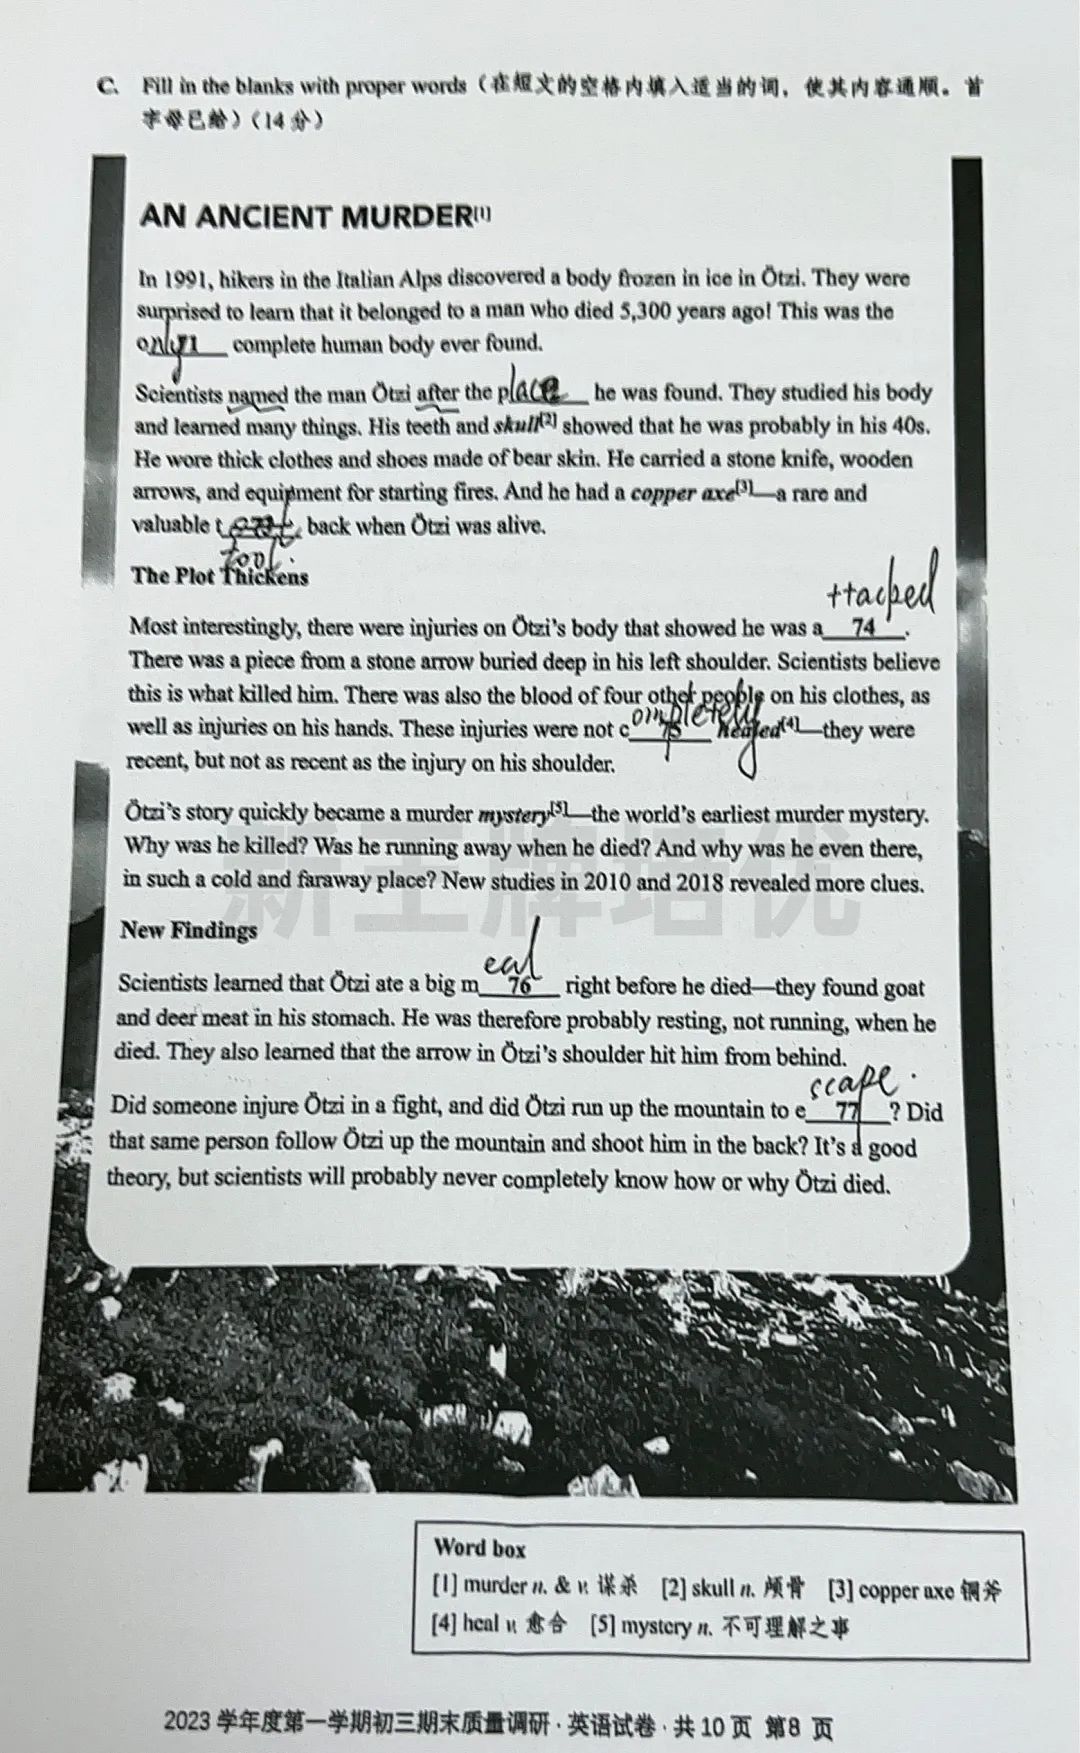 C. Fill in the blanks with proper words（在短文的空格内填入适当的词，使其内容通顺。首
字母已给）（14 分）
AN ANCIENT MURDER[1]
In 1991, hikers in the Italian Alps discovered a body frozen in ice in Ötzi. They were
surprised to learn that it belonged to a man who died 5,300 years ago! This was the
only complete human body ever found.
Scientists named the man Ötzi after the place he was found. They studied his body
and learned many things. His teeth and skull[2] showed that he was probably in his 40s.
He wore thick clothes and shoes made of bear skin. He carried a stone knife, wooden
arrows, and equipment for starting fires. And he had a copper axe[3]—a rare and
valuable t 73 back when Ötzi was alive.
tool.
The Plot Thickens
ttacked
Most interestingly, there were injuries on Ötzi's body that showed he was a 74 .
There was a piece from a stone arrow buried deep in his left shoulder. Scientists believe
this is what killed him. There was also the blood of four other people on his clothes, as
ompletely
well as injuries on his hands. These injuries were not c 75 healed[4]—they were
recent, but not as recent as the injury on his shoulder.
Ötzi's story quickly became a murder mystery[5]—the world's earliest murder mystery.
Why was he killed? Was he running away when he died? And why was he even there,
in such a cold and faraway place? New studies in 2010 and 2018 revealed more clues.
新王牌培优
New Findings
eal
Scientists learned that Ötzi ate a big m 76 right before he died—they found goat
and deer meat in his stomach. He was therefore probably resting, not running, when he
died. They also learned that the arrow in Ötzi's shoulder hit him from behind.
scape.
Did someone injure Ötzi in a fight, and did Ötzi run up the mountain to e 77 ? Did
that same person follow Ötzi up the mountain and shoot him in the back? It's a good
theory, but scientists will probably never completely know how or why Ötzi died.
Word box
[1] murder n. & v. 谋杀 [2] skull n. 颅骨 [3] copper axe 铜斧
[4] heal v. 愈合 [5] mystery n. 不可理解之事
2023 学年度第一学期初三期末质量调研·英语试卷·共 10 页 第8 页